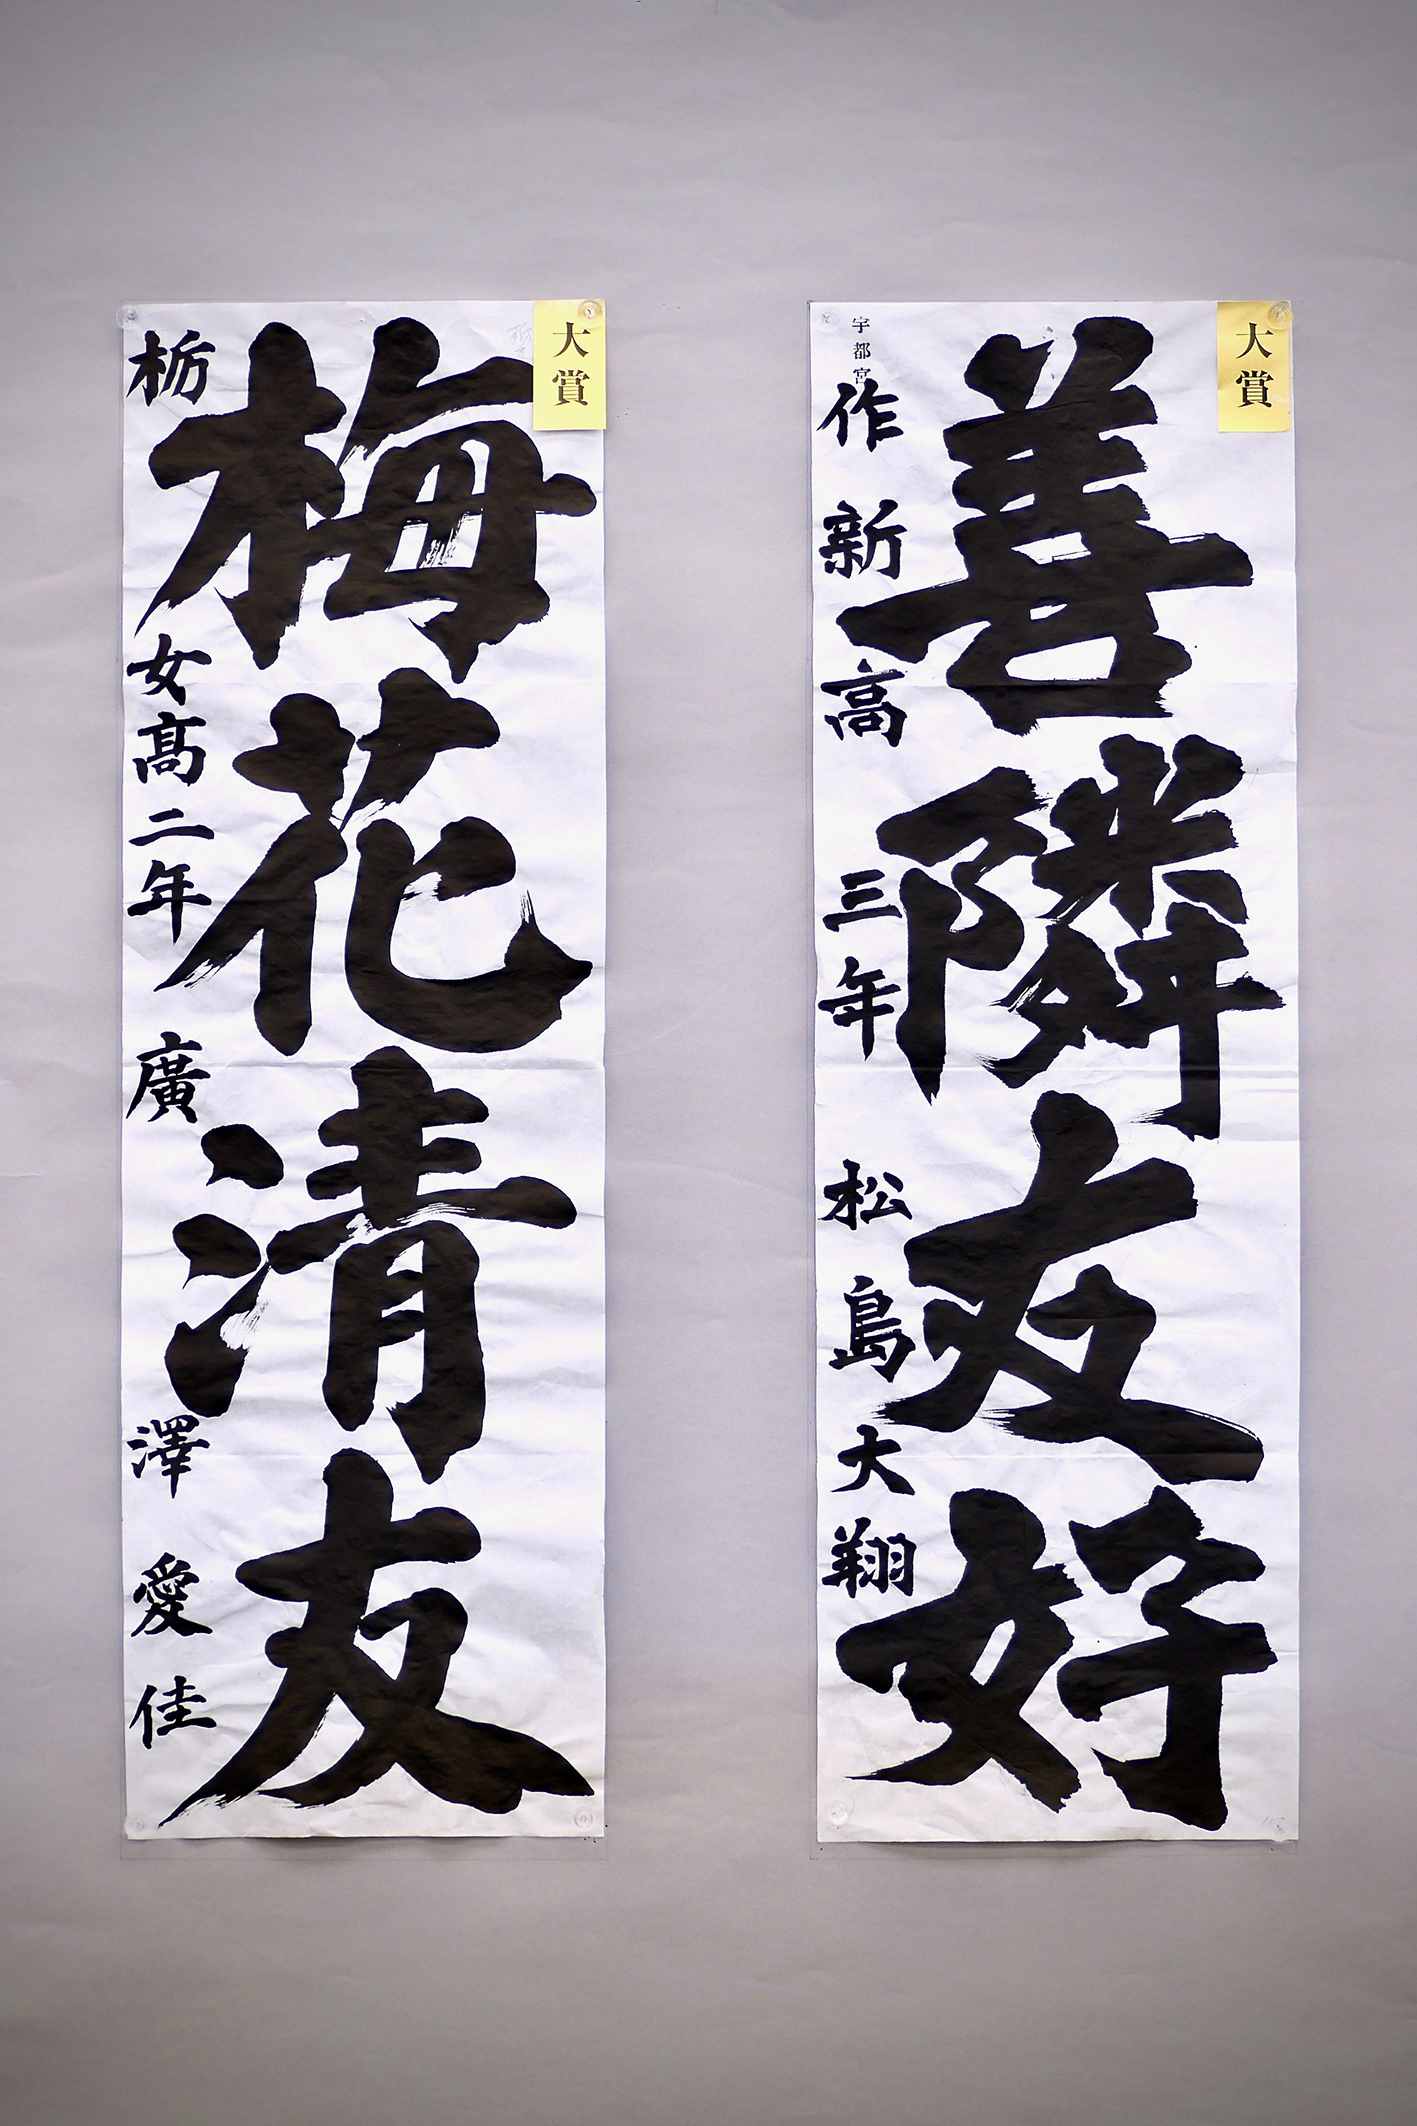 大賞
善隣友好
宇都宮
作新高三年 松島大翔
大賞
梅花清友
栃女髙二年 廣澤愛佳